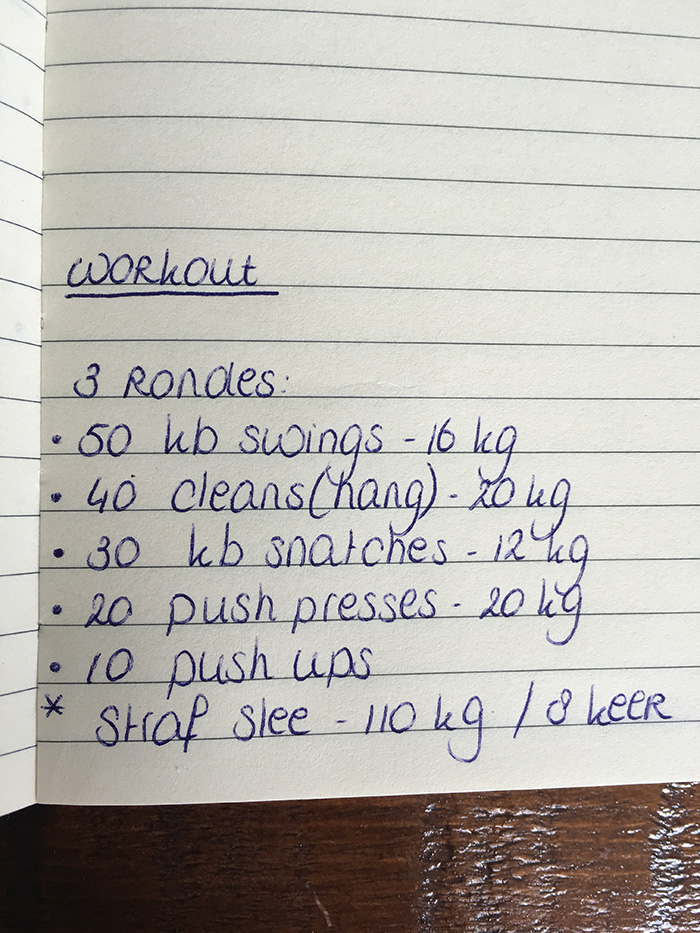 WORKOUT
3 RONDES:
• 50 kb swings - 16 kg
• 40 cleans (hang) - 20 kg
• 30 kb snatches - 12 kg
• 20 push presses - 20 kg
• 10 push ups
* Straf slee - 110 kg / 8 keer